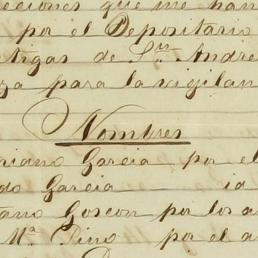 ecciones que me han
por el Depositario
Artigas de Sn. Andre
za para la vigilan
Nombres
riano Garcia por el
do Garcia id
tano Goscon por los a
Mª Pino por el a